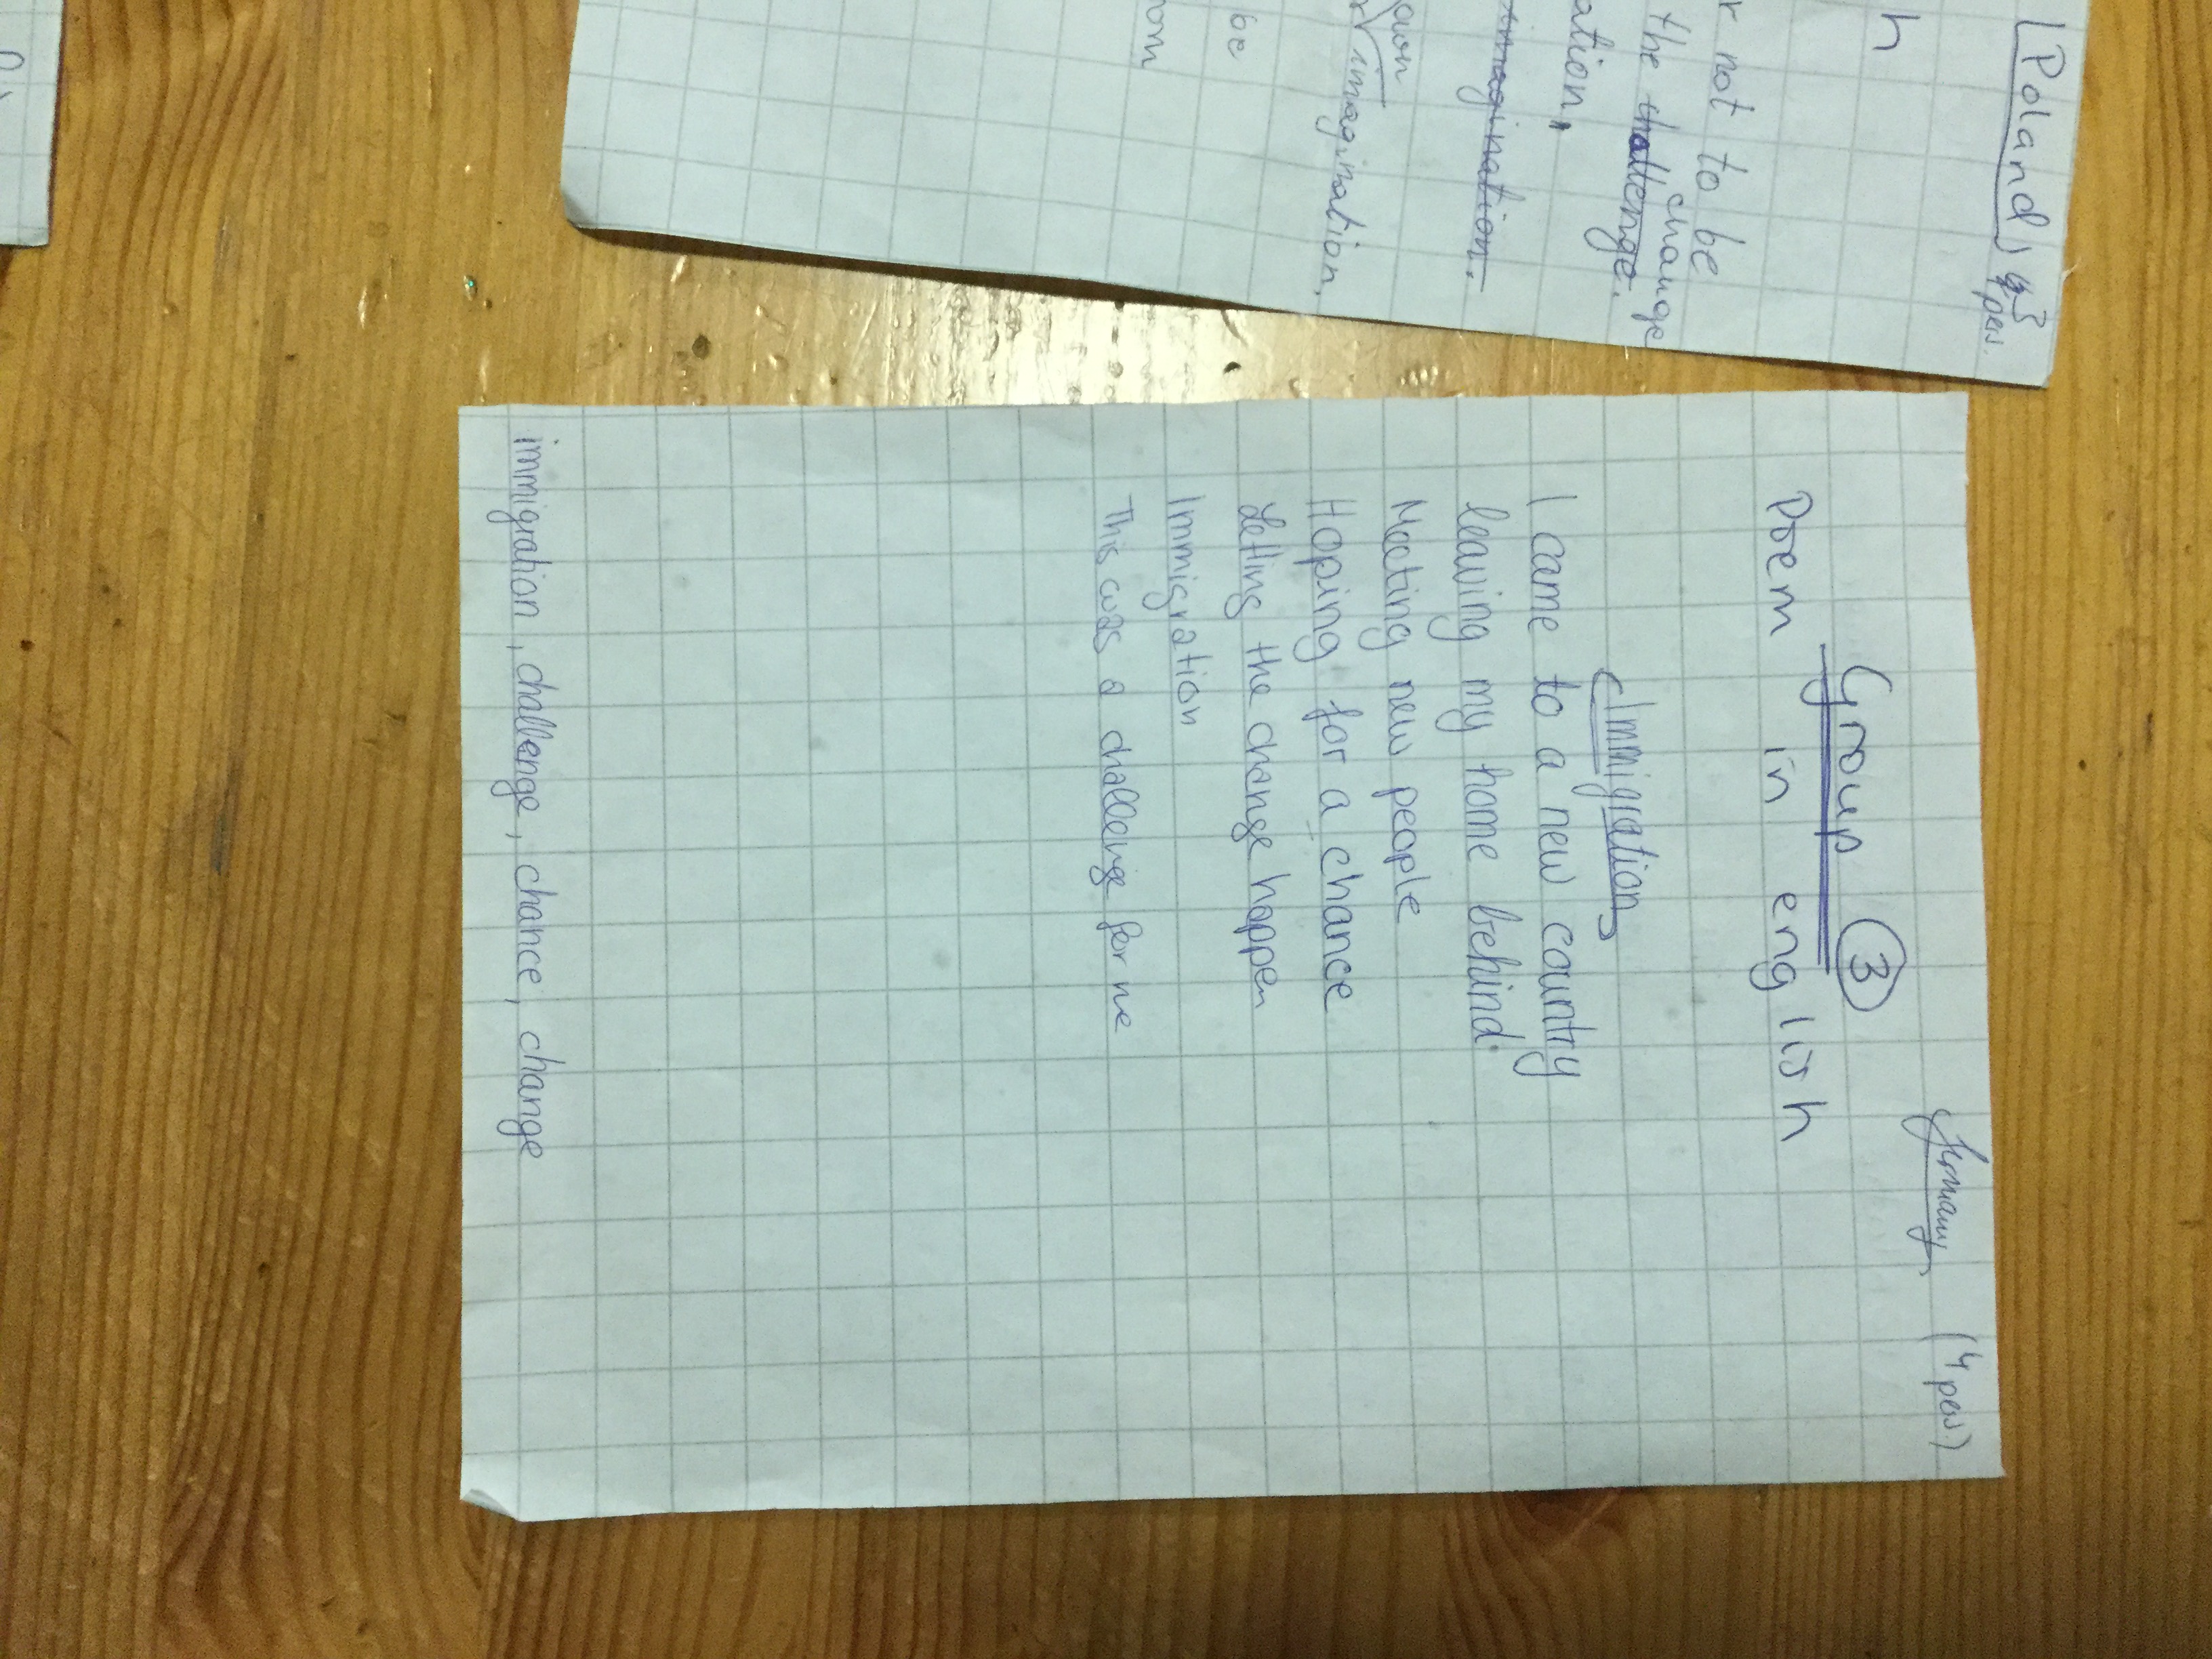 Germany (4 pers.)
Group 3
Poem in english
Immigration
I came to a new country
leaving my home behind.
Meeting new people
Hoping for a chance
Letting the change happen
Immigration
This was a challenge for me
immigration, challenge, chance, change
(Poland)
h
r not to be
change
the challenge.
ation,
imagination.
own
imagination.
be